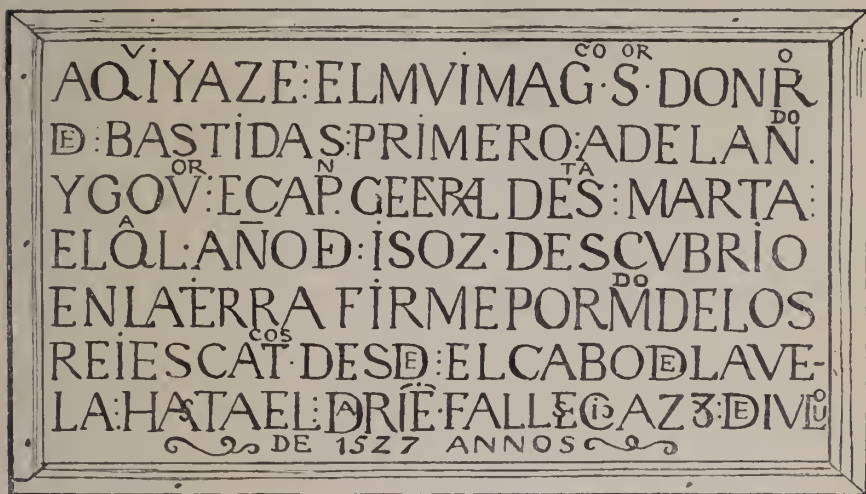 AQVIYAZE:ELMVIMAGCO·SOR·DONRO
DE:BASTIDAS:PRIMERO:ADELANDO.
YGOVOR:ECAPN.GEENRAL DESTA:MARTA:
ELQAL:AÑODE:ISOZ·DESCVBRIO
ENLATIERRA FIRMEPORMDODELOS
REIESCATCOS·DESDE:ELCABODELAVE-
LA:HASTAEL:DARIĒ·FALLESCIO
DE 1527 ANNOS